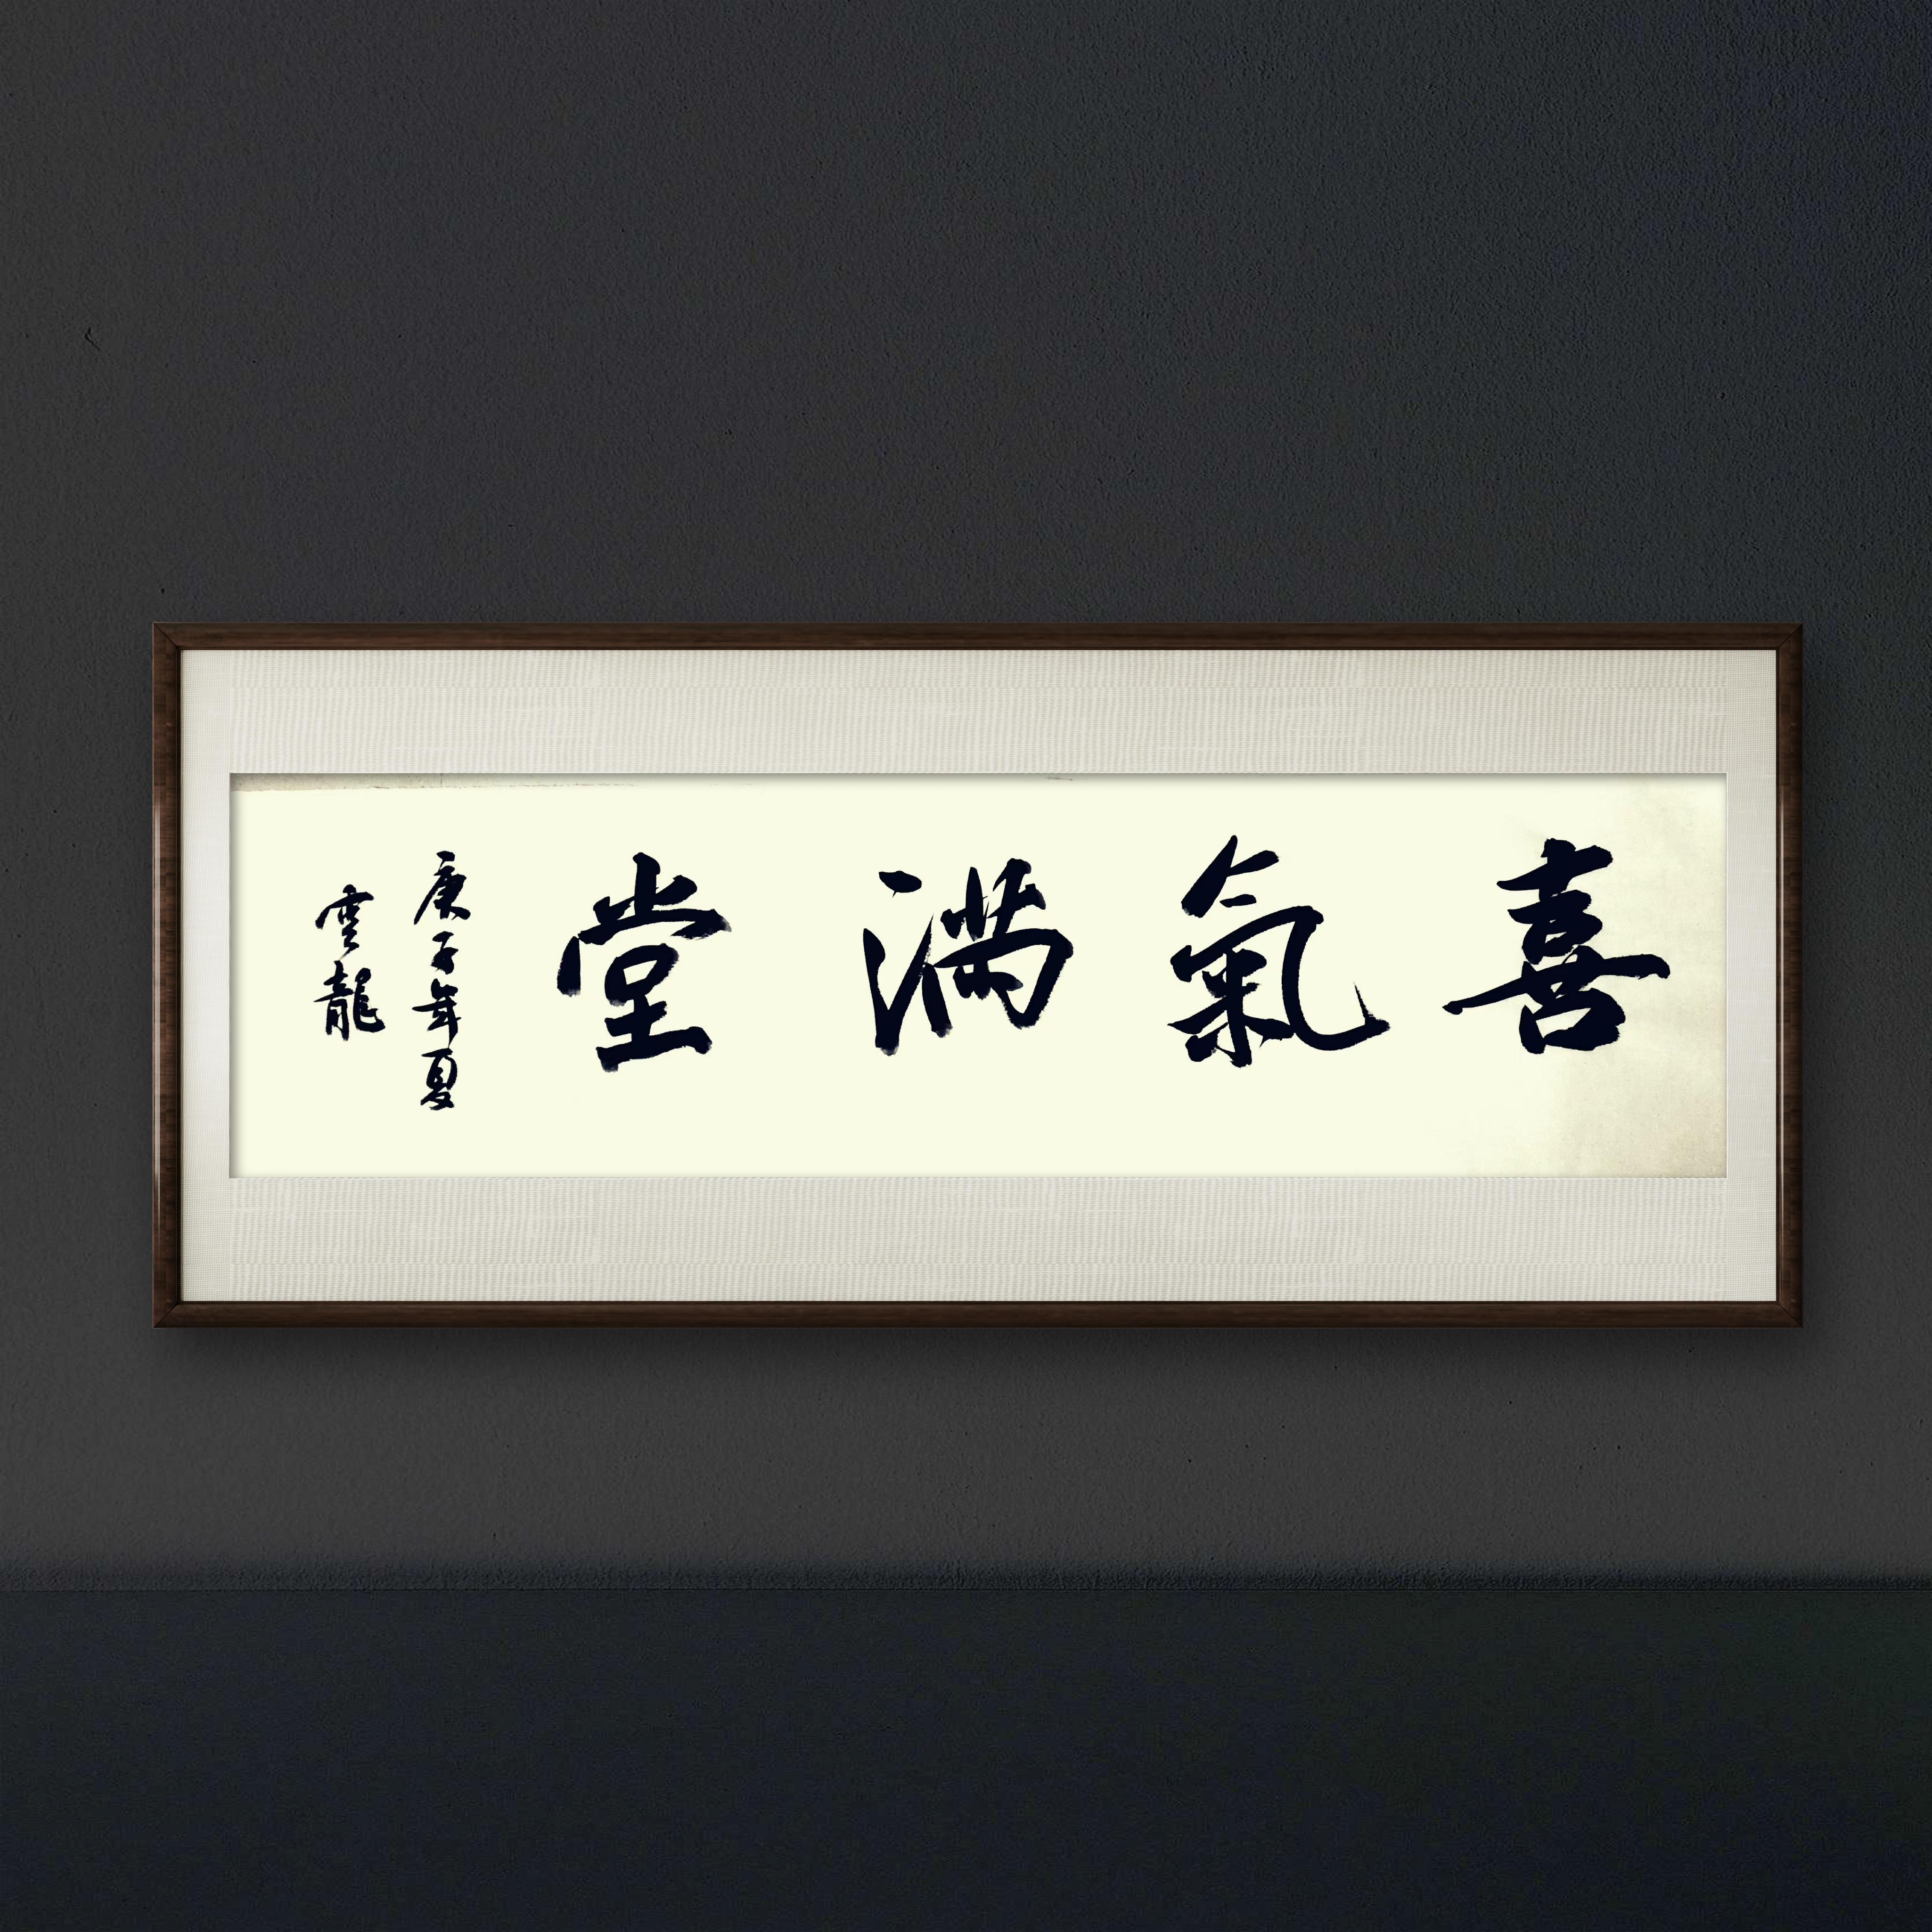 喜氣滿堂
庚子年夏
雲龍